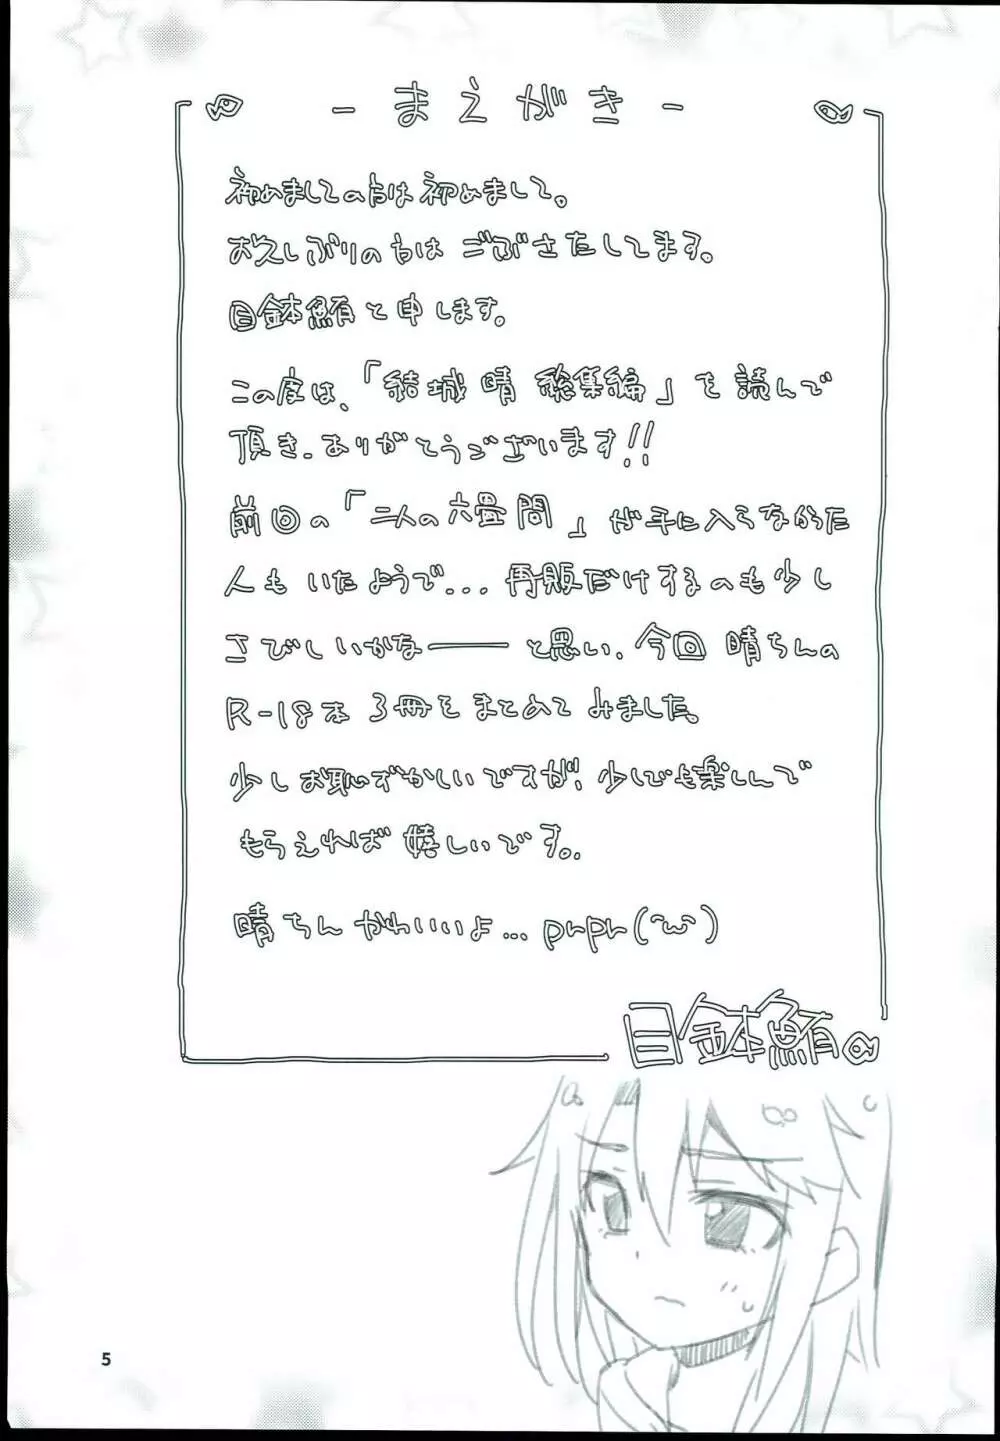 - まえがき -
初めましての方は初めまして。
お久しぶりの方は ごぶさたしてます。
目鉢鮪と申します。
この度は、「結城 晴 総集編」を読んで
頂き、ありがとうございます!!
前回の「二人の六畳間」が手に入らなかった
人も いたようで... 再販だけするのも少し
さびしいかなーと思い、今回 晴ちんの
R-18本 3冊をまとめてみました。
少しお恥ずかしいですが、少しでも楽しんで
もらえれば 嬉しいです。
晴ちん かわいいよ... prpr(~ω~)
目鉢鮪
5